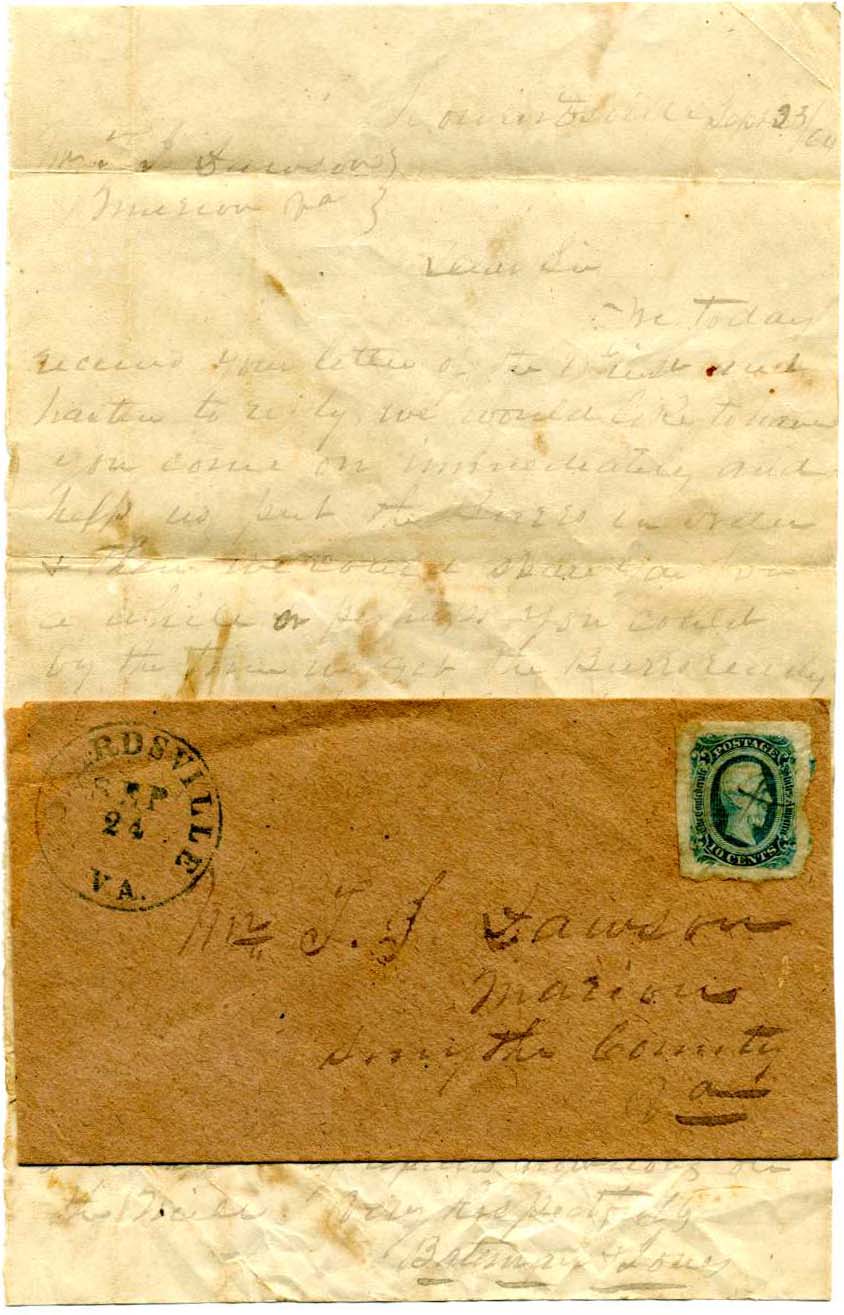 Sept 23/64
Mr T. J. Lawson }
Marion Va }
Dear Sir
We today
received your letter of the inst and
hasten to reply we would like to have
you come on immediately and
help us put the in order
& then we could spare you for
a while or perhaps you could
by the time we get the ready
ARDSVILLE
SEP
24
VA.
POSTAGE
The Confederate States of America
10 CENTS
Mr T. J. Lawson
Marion
Smythe County
Va
the Mill. Very respectfully
Bateman & Jones